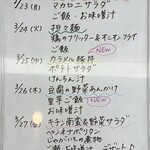 3/23(月)
マカロニサラダ
ご飯・お味噌汁
3/24(火)
担々麺
鶏のフリッター&オニオンフライ
ご飯
NEW
3/25(水)
カラメル豚丼
ポテトサラダ
けんちん汁
NEW
3/26(木)
豆腐の野菜あんかけ
里芋ご飯
お味噌汁
NEW
3/27(金)
チキン南蛮&野菜サラダ
ペペロンナポリタン
じゃがいもの煮物
ご飯 お味噌汁 デザート